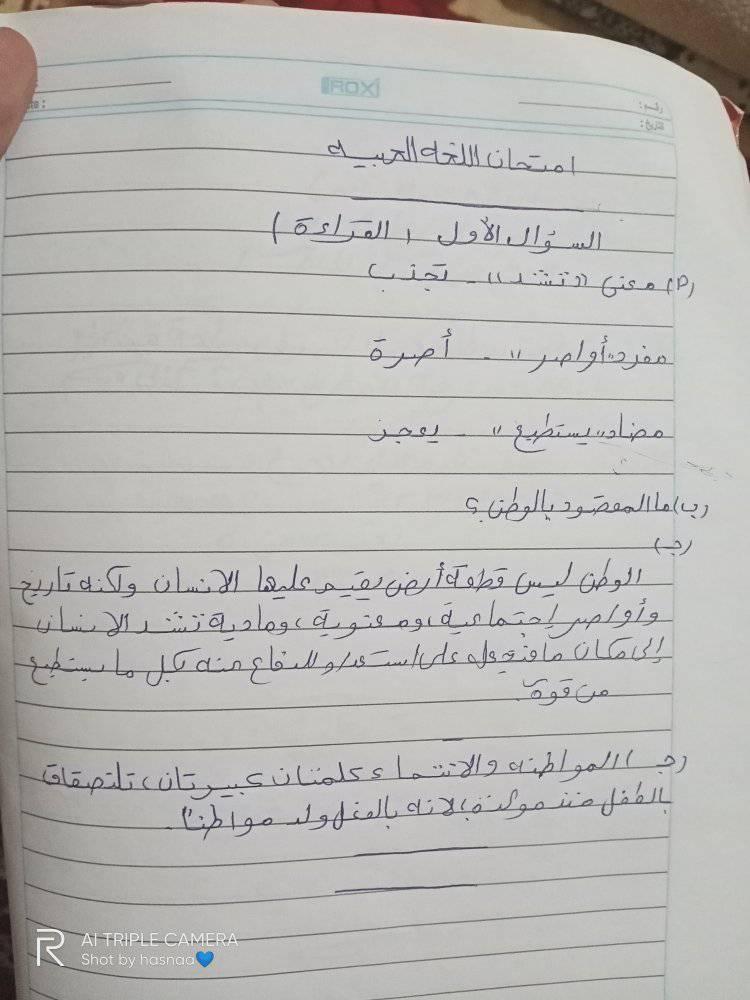 ROX
رقم:
التاريخ:
امتحان اللغه العربيه
السؤال الأول (القراءة)
(P) معنى "تشد" - تجذب
مفرد "أواصر" - أصرة
مضاد "يستطيع" - يعجز
(ب) ما المقصود بالوطن؟
(جـ)
الوطن ليس قطعة أرض يقيم عليها الانسان ولكنه تاريخ
وأواصر إجتماعية، ومعنوية، ومادية تشد الانسان
إلى مكان ما فتجعله على استعداد للدفاع عنه بكل ما يستطيع
من قوة.
(جـ) المواطنه والانتماء كلمتان كبيرتان، تلتصقان
بالطفل منذ مولده، لانه بالفعل ولد مواطناً.
AI TRIPLE CAMERA
Shot by hasnaa💙